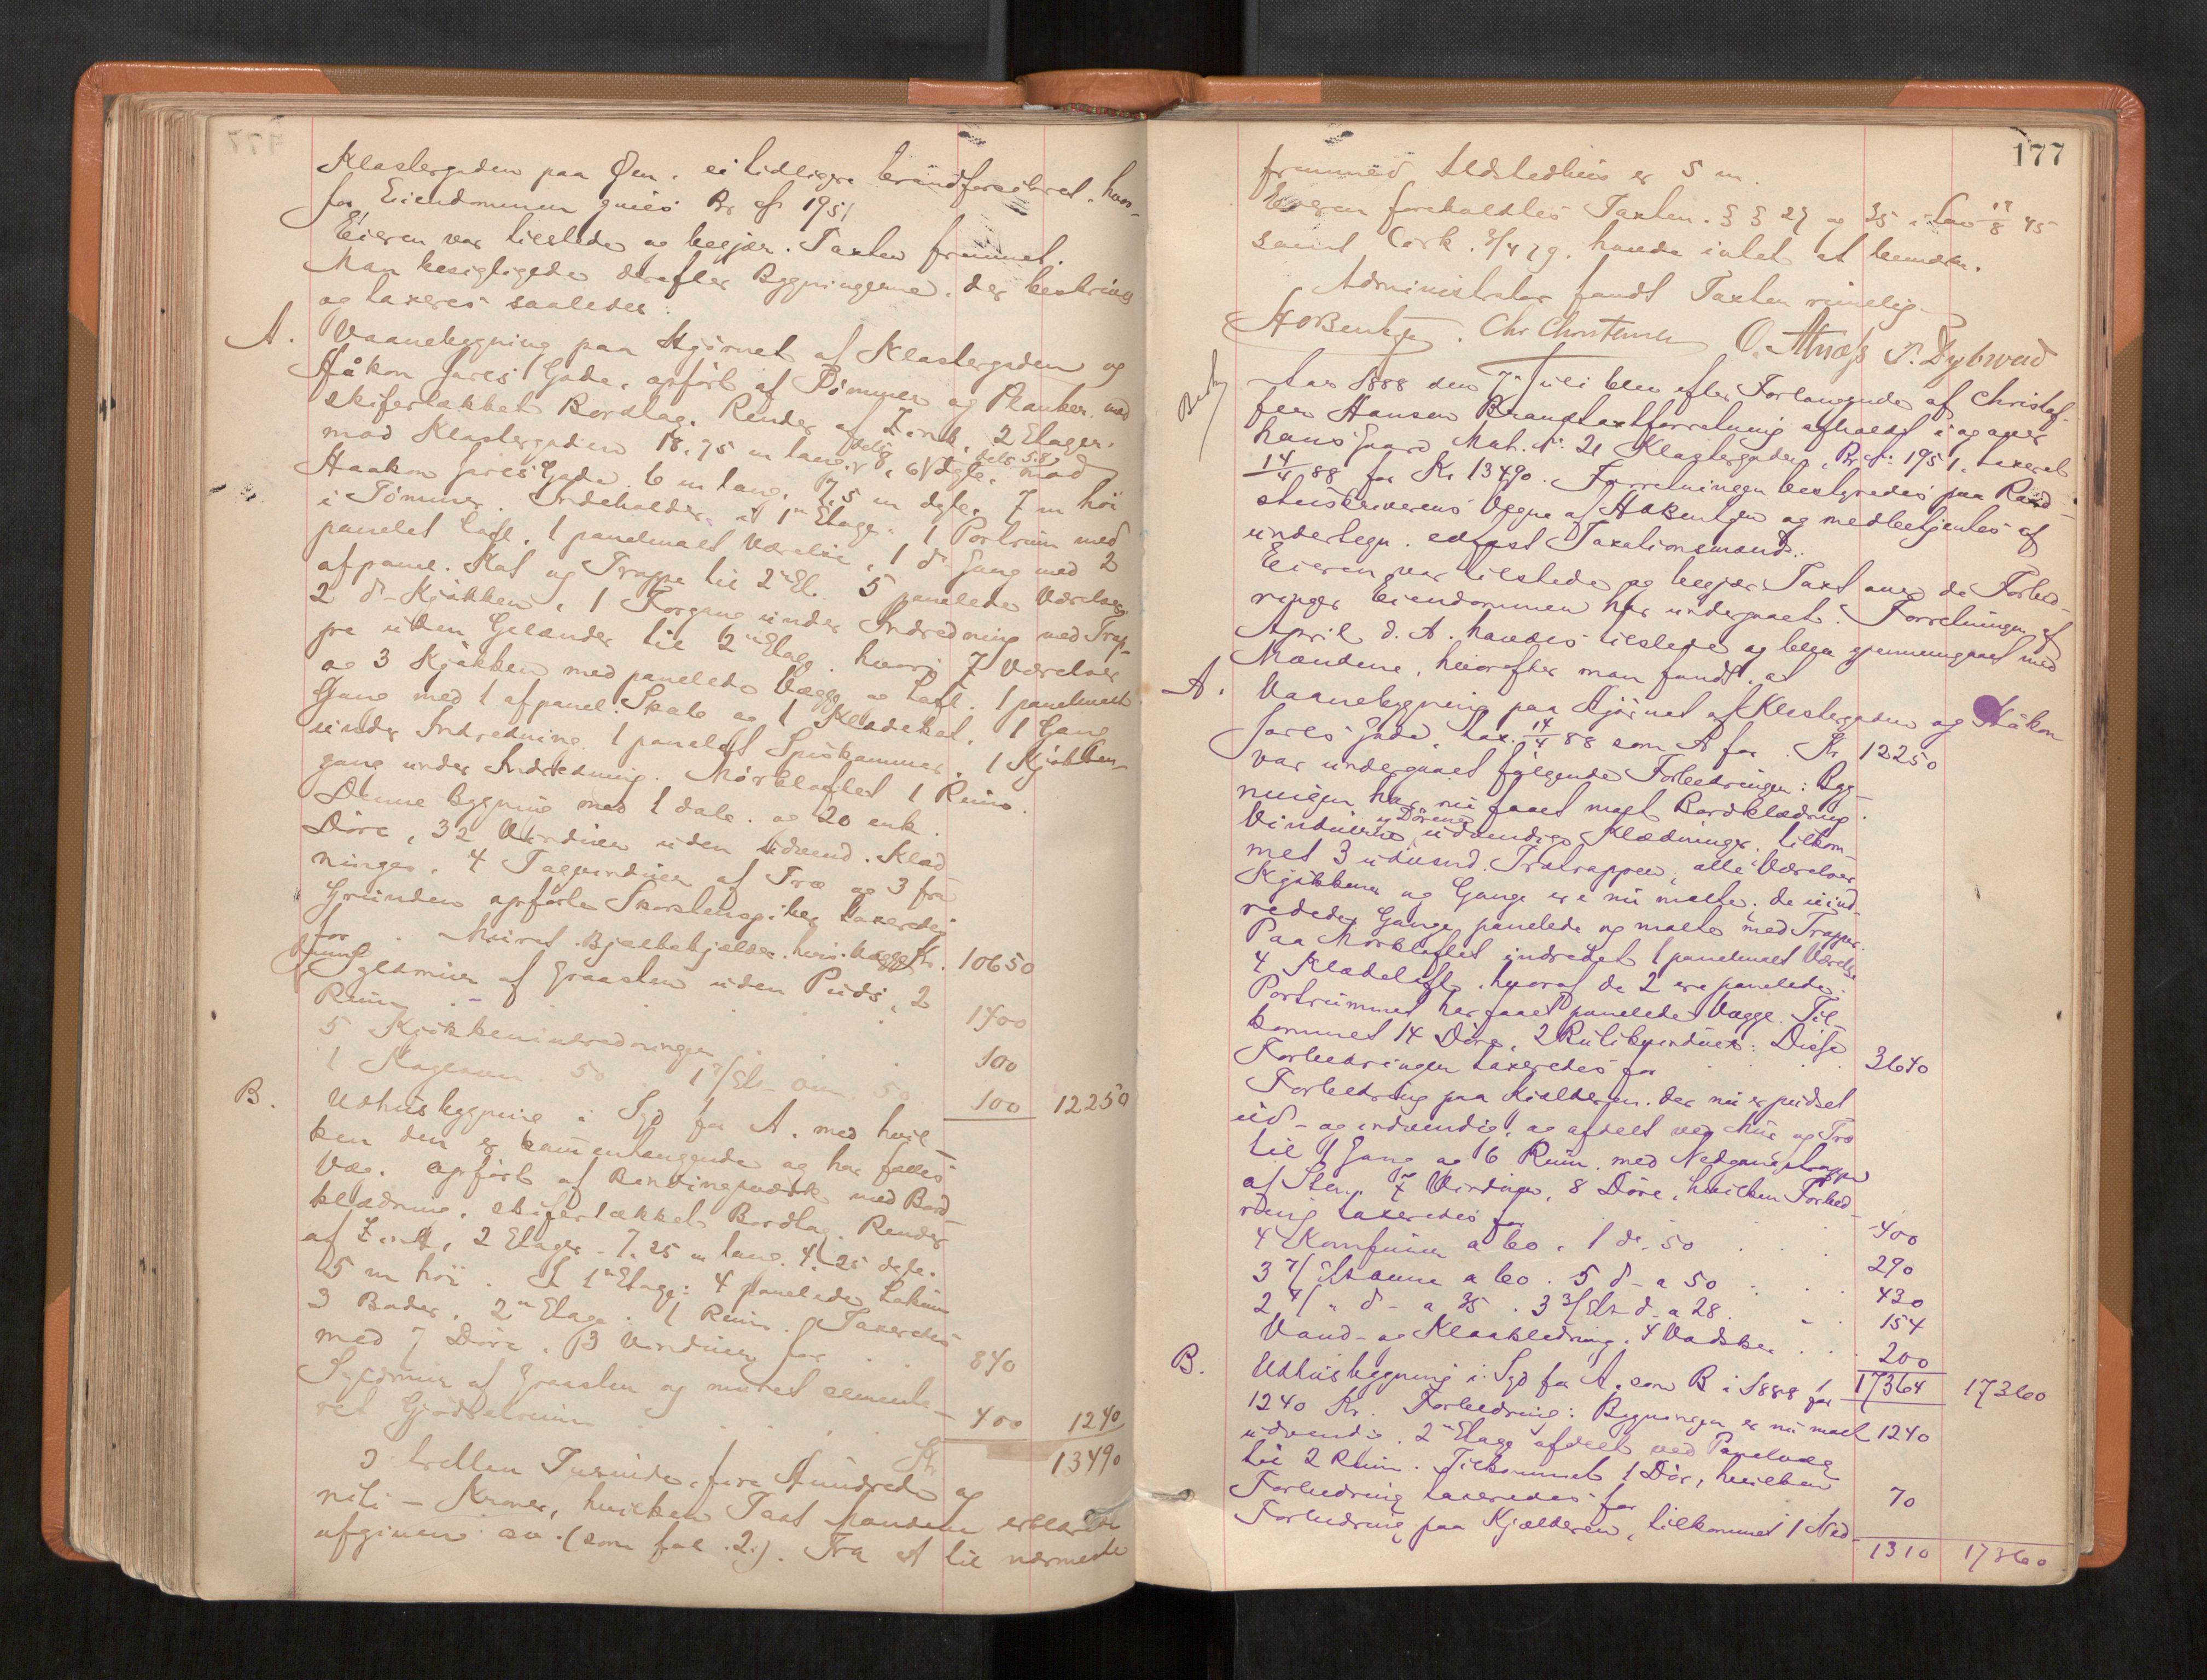 Klostergaden paa Øen, ei tidligere brandforsikret, hvor-
for Eiendommen gives Br. № 1951
Eieren var tilstede og begjær. Taxten fremmet.
Man besigtigede derefter Bygningerne, der beskrives
og taxeres saaledes:
A. Vaanebygning paa Hjørnet af Klostergaden og
Håkon Jarls Gade, opført af Tømmer og Planker med
skifertækket Bordtag, Render af Zink, 2 Etager,
mod Klostergaden 18,75 m lang, delv. 6, dels 5.8 dyb, mod
Haakon Jarls Gade 6 m lang, 7,5 m dyb, 7 m høi
i Tømmer. Indeholder i 1ste Etage: 1 Portrum med
panelet Loft, 1 panelmalt Værelse, 1 do Gang med 2
afpanel. Kot og Trappe til 2n Et. 5 panelede Værelser,
2 do Kjøkken, 1 Forgang under Indredning med Trap-
pe uden Gelænder til 2n Etag. hvori 7 Værelser
og 3 Kjøkken med panelede Vægge og Loft. 1 panelmalt
Gang med 1 afpanel. Skab og 1 Klædekot, 1 Gang
under Indredning, 1 panelet Spiskammer, 1 Kjøkken-
gang under Indredning. Mørkloftet 1 Rum.
Denne Bygning med 1 dobb. og 20 enk.
Døre, 32 Vinduer uden udvend. Klæd-
ninger, 4 Tagvinduer af Træ og 3 fra
Grunden opførte Skorstenspiber taxeredes
for . . Kr. 10650
Muret Bjælkekjelder, hvis Vægge
Sydmur af Graasten uden Puds, 2
Rum . . . . 1400
5 Kjøkkenindredninger . . . 100
1 Kageovn 50 1 2/Et Ovn 50 100 12250
B. Udhusbygning i Syd for A. med hvil-
ken den er sammenhængende og har fælles
Væg. Opført af Bindingsværk med Bord-
klædning, skifertækket Bordtag, Render
af Zink, 2 Etager. 7.25 m lang 4.25 dyb.
5 m høi. I 1n Etage: 4 panelede Lokum
3 Boder. 2n Etage: 1 Rum. Taxeredes
med 7 Døre, 3 Vinduer for . . 840
Sydmur af Graasten og muret cemente-
ret Gjødselrum . . . 400 1240
Kr. 13490
tretten Tusinde, fire Hundrede og
niti – Kroner, hvilken Taxt Mændene erklærede
afgiven ov. (som fol. 2.). Fra A til nærmeste
177
fremmed Ildstedhus er 5 m.
Eieren foreholdtes Taxten. §§ 27 og 35 i Lov 19/8 45
samt Cirk. 3/4 79. havde intet at bemærke.
Administrator fandt Taxten rimelig.
HOBentzen. Chr Christensen O. Moxnæss P. Dybwad
Aar 1888 den 7n Juli blev efter Forlangende af Christof-
fer Hansen Brandtaxtforretning afholdt i og over
hans Gaard Mat. № 21 Klostergaden, Br. № 1951, taxeret
14/4 88 for Kr 13490. Forretningen bestyredes paa Raad-
stuskriverens Vegne af HOBentzen og medbetjentes af
undertegn. edfæst Taxationsmænd.
Eieren var tilstede og begjær. Taxt over de Forbed-
ringer Eiendommen har undergaaet. Forretningen af
April d. A. havdes tilstede og blev gjennemgaaet med
Mændene, hvorefter man fandt, at
A. Vaanebygning paa Hjørnet af Klostergaden og Håkon
Jarls Gade, tax. 14/4 88 som A for . Kr 12250
var undergaaet følgende Forbedringer: Byg-
ningen har nu faaet malt Bordklædning.
Vinduerne og Dørene udvendige Klædninger. Tilkom-
met 3 udvend. Trætrapper, alle Værelser
Kjøkkener og Gange ere nu malte, de uind-
redede Gange panelede og malte med Trapper.
Paa Mørkloftet indredet 1 panelmalt Værelse
4 Klædeloft, hvoraf de 2 ere panelede.
Portrummet har faaet panelede Vægge. Til-
kommet 14 Døre, 2 Vinduer: Disse
Forbedringer taxeredes for . . . . 3640
Forbedring paa Kjælderen, der nu er pudset
ud- og indvendig, og afdelt ved Mur og Træ
til 1 Gang og 6 Rum, med Nedgangstrappe
af Sten, 7 Vinduer, 8 Døre, hvilken Forbed-
ring taxeredes for . . . 400
4 Komfurer a 60, 1 do. 50 . . . 290
3 3/Etsovne a 60. 5 do a 50 . . . 430
2 4/ " do a 35. 3 3/Ets do a 28. . . 154
Vand- og Kloakledning. 4 Vadske . . . 200
17364 17360
B. Udhusbygning i Syd for A, som B i 1888 for
1240 Kr. Forbedring: Bygningen er nu malt 1240
udvendig. 2n Etage afdelt ved Panelvæg
til 2 Rum. Tilkommet 1 Dør, hvilken
Forbedring taxeredes for . . 70
Forbedring paa Kjælderen, tilkommet 1 Ned-
1310 17360